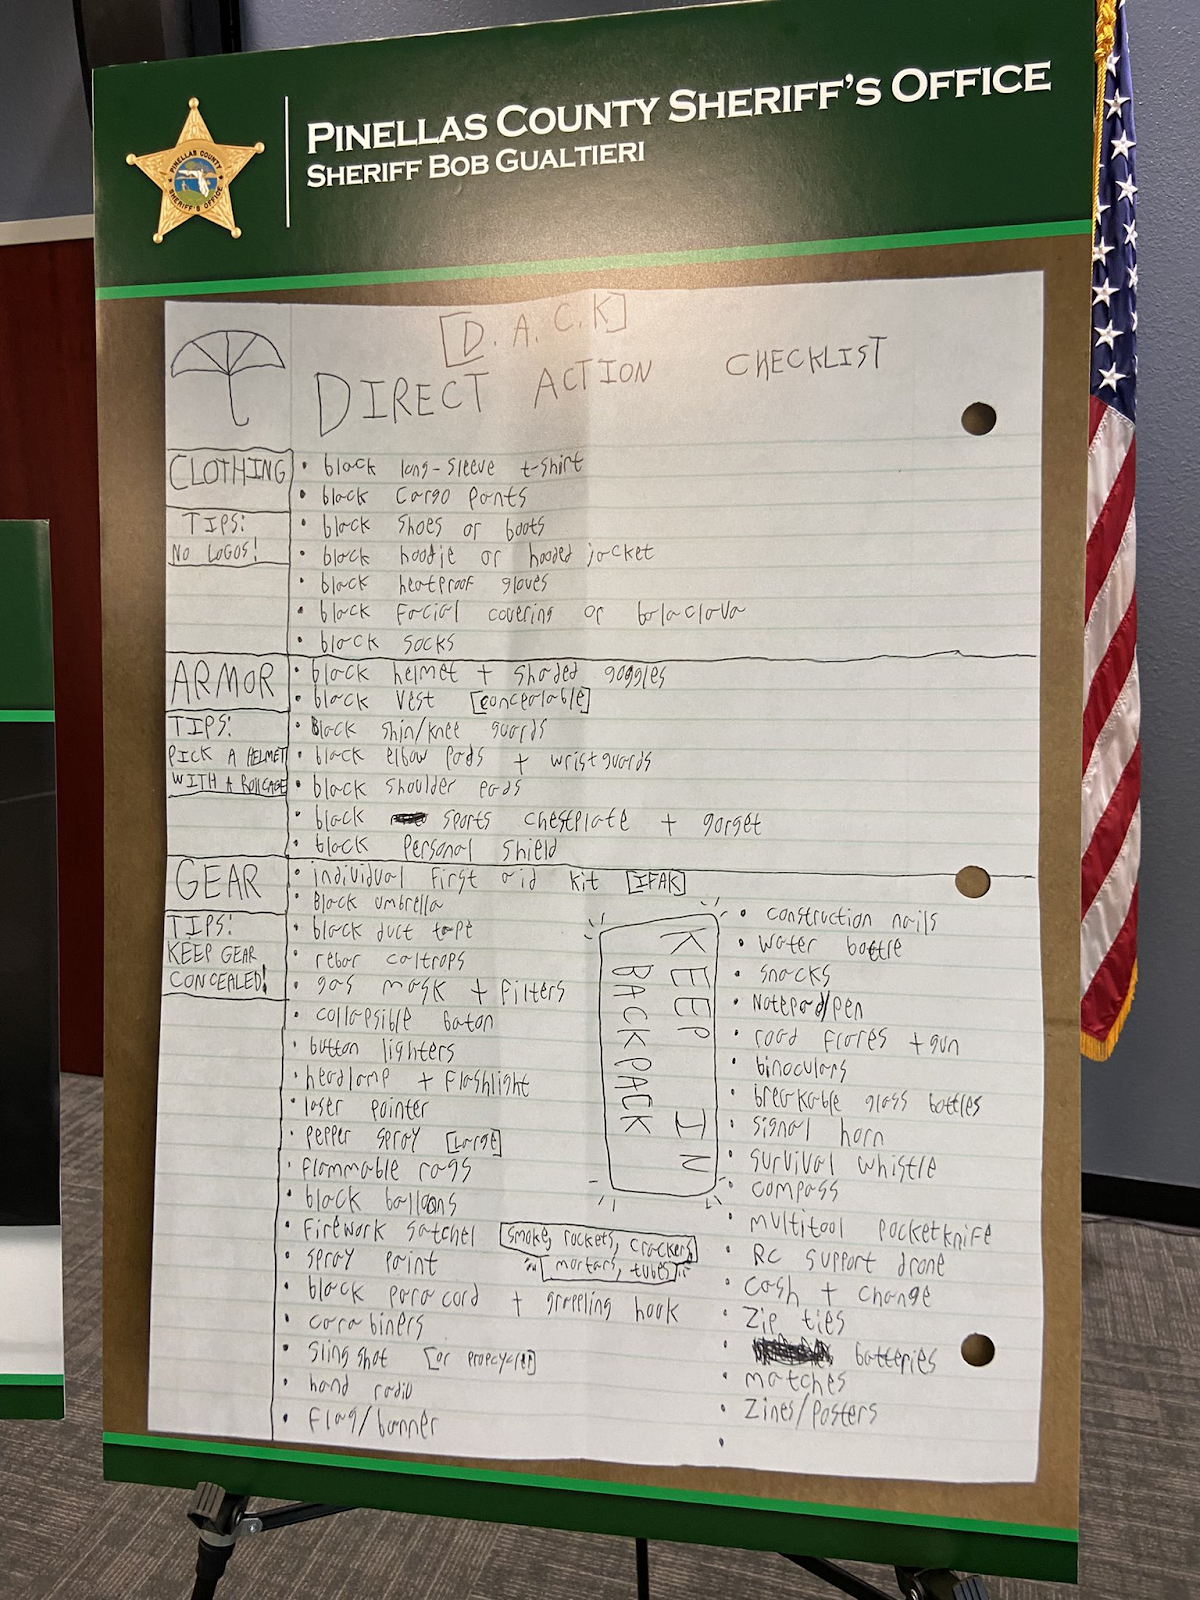 PINELLAS COUNTY SHERIFF'S OFFICE
SHERIFF BOB GUALTIERI
PINELLAS COUNTY
SHERIFF'S OFFICE
[D.A.C.K]
DIRECT ACTION CHECKLIST
CLOTHING
TIPS:
NO LOGOS!
• black long-sleeve t-shirt
• black cargo pants
• black shoes or boots
• black hoodie or hooded jacket
• black heatproof gloves
• black facial covering or balaclava
• black socks
ARMOR
TIPS:
PICK A HELMET
WITH A ROLLCAGE
• black helmet + shaded goggles
• black vest [concealable]
• Black shin/knee guards
• black elbow pads + wristguards
• black shoulder pads
• black sports chestplate + gorget
• black personal shield
GEAR
TIPS:
KEEP GEAR
CONCEALED!
• individual first aid kit [IFAK]
• Black umbrella
• black duct tape
• rebar caltrops
• gas mask + filters
• collapsible baton
• button lighters
• headlamp + flashlight
• laser pointer
• pepper spray [Large]
• flammable rags
• black balloons
• firework satchel [smoke, rockets, crackers,
[mortars, tubes]
• spray paint
• black paracord + grappling hook
• carabiners
• slingshot [or propcycler]
• hand radio
• Flag/banner
KEEP IN
BACKPACK
• construction nails
• water bottle
• snacks
• Notepad/pen
• road flares + gun
• binoculars
• breakable glass bottles
• signal horn
• survival whistle
• compass
• multitool pocketknife
• RC support drone
• cash + change
• Zip ties
• batteries
• matches
• Zines/Posters
•